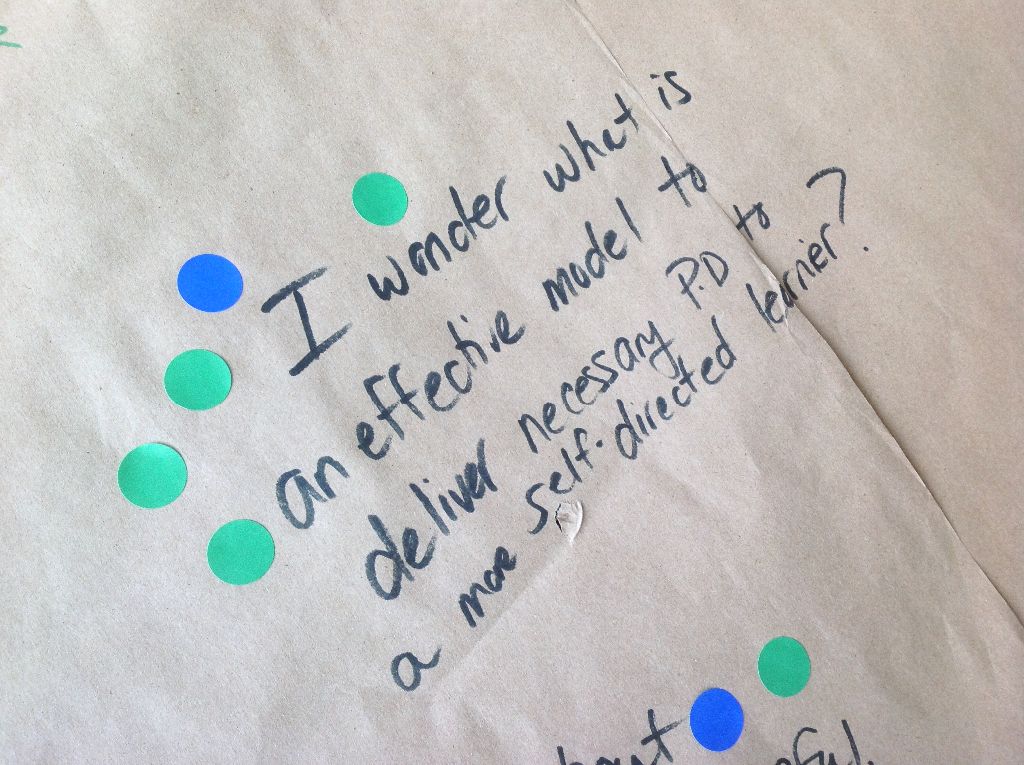 I wonder what is
an effective model to
deliver necessary P.D to
a more self-directed learnier?